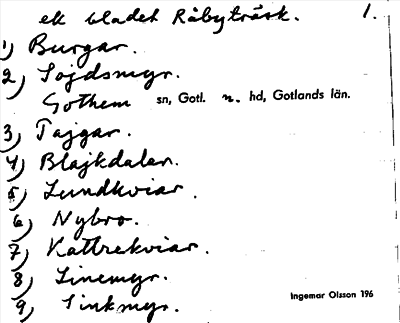 ek bladet Råbyträsk. 1.
1) Burgar.
2) Sojdsmyr.
Gothem sn, Gotl. n. hd, Gotlands län.
3) Tajgar.
4) Blajkdalar.
5) Lundkviar.
6) Nybro.
7) Kattrekviar.
8) Linemyr.
9) Sinkmyr.
Ingemar Olsson 196